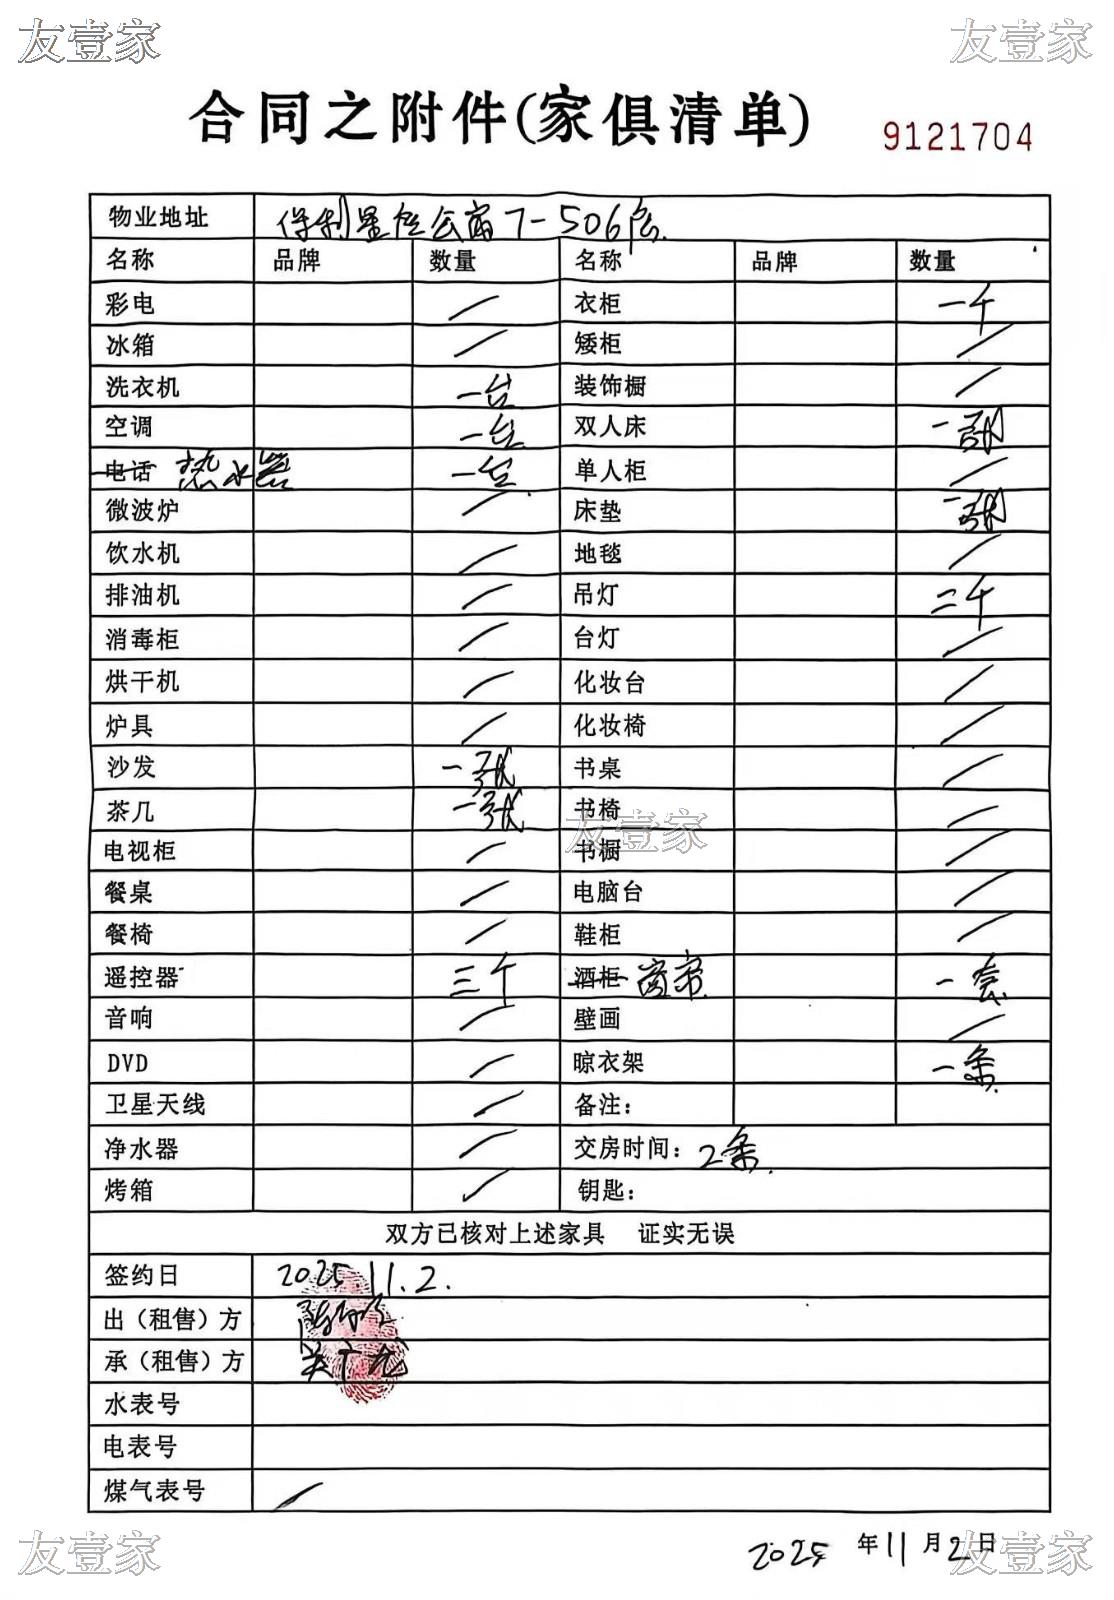 友壹家 友壹家
合同之附件(家俱清单) 9121704
物业地址 保利星座公寓7-506房.
名称 品牌 数量 名称 品牌 数量
彩电 / 衣柜 一个
冰箱 / 矮柜 /
洗衣机 一台 装饰橱 /
空调 一台 双人床 一张
电话 热水器 一台 单人柜 /
微波炉 / 床垫 一张
饮水机 / 地毯 /
排油机 / 吊灯 二个
消毒柜 / 台灯 /
烘干机 / 化妆台 /
炉具 / 化妆椅 /
沙发 一张 书桌 /
茶几 一张 书椅 /
友壹家
电视柜 / 书橱 /
餐桌 / 电脑台 /
餐椅 / 鞋柜 /
遥控器 三个 酒柜 窗帘. 一套
音响 / 壁画 /
DVD / 晾衣架 一条
卫星天线 / 备注：
净水器 / 交房时间： 2条.
烤箱 / 钥匙：
双方已核对上述家具 证实无误
签约日 2025.11.2.
出（租售）方
承（租售）方
水表号
电表号
煤气表号 /
2025 年 11 月 2 日
友壹家 友壹家